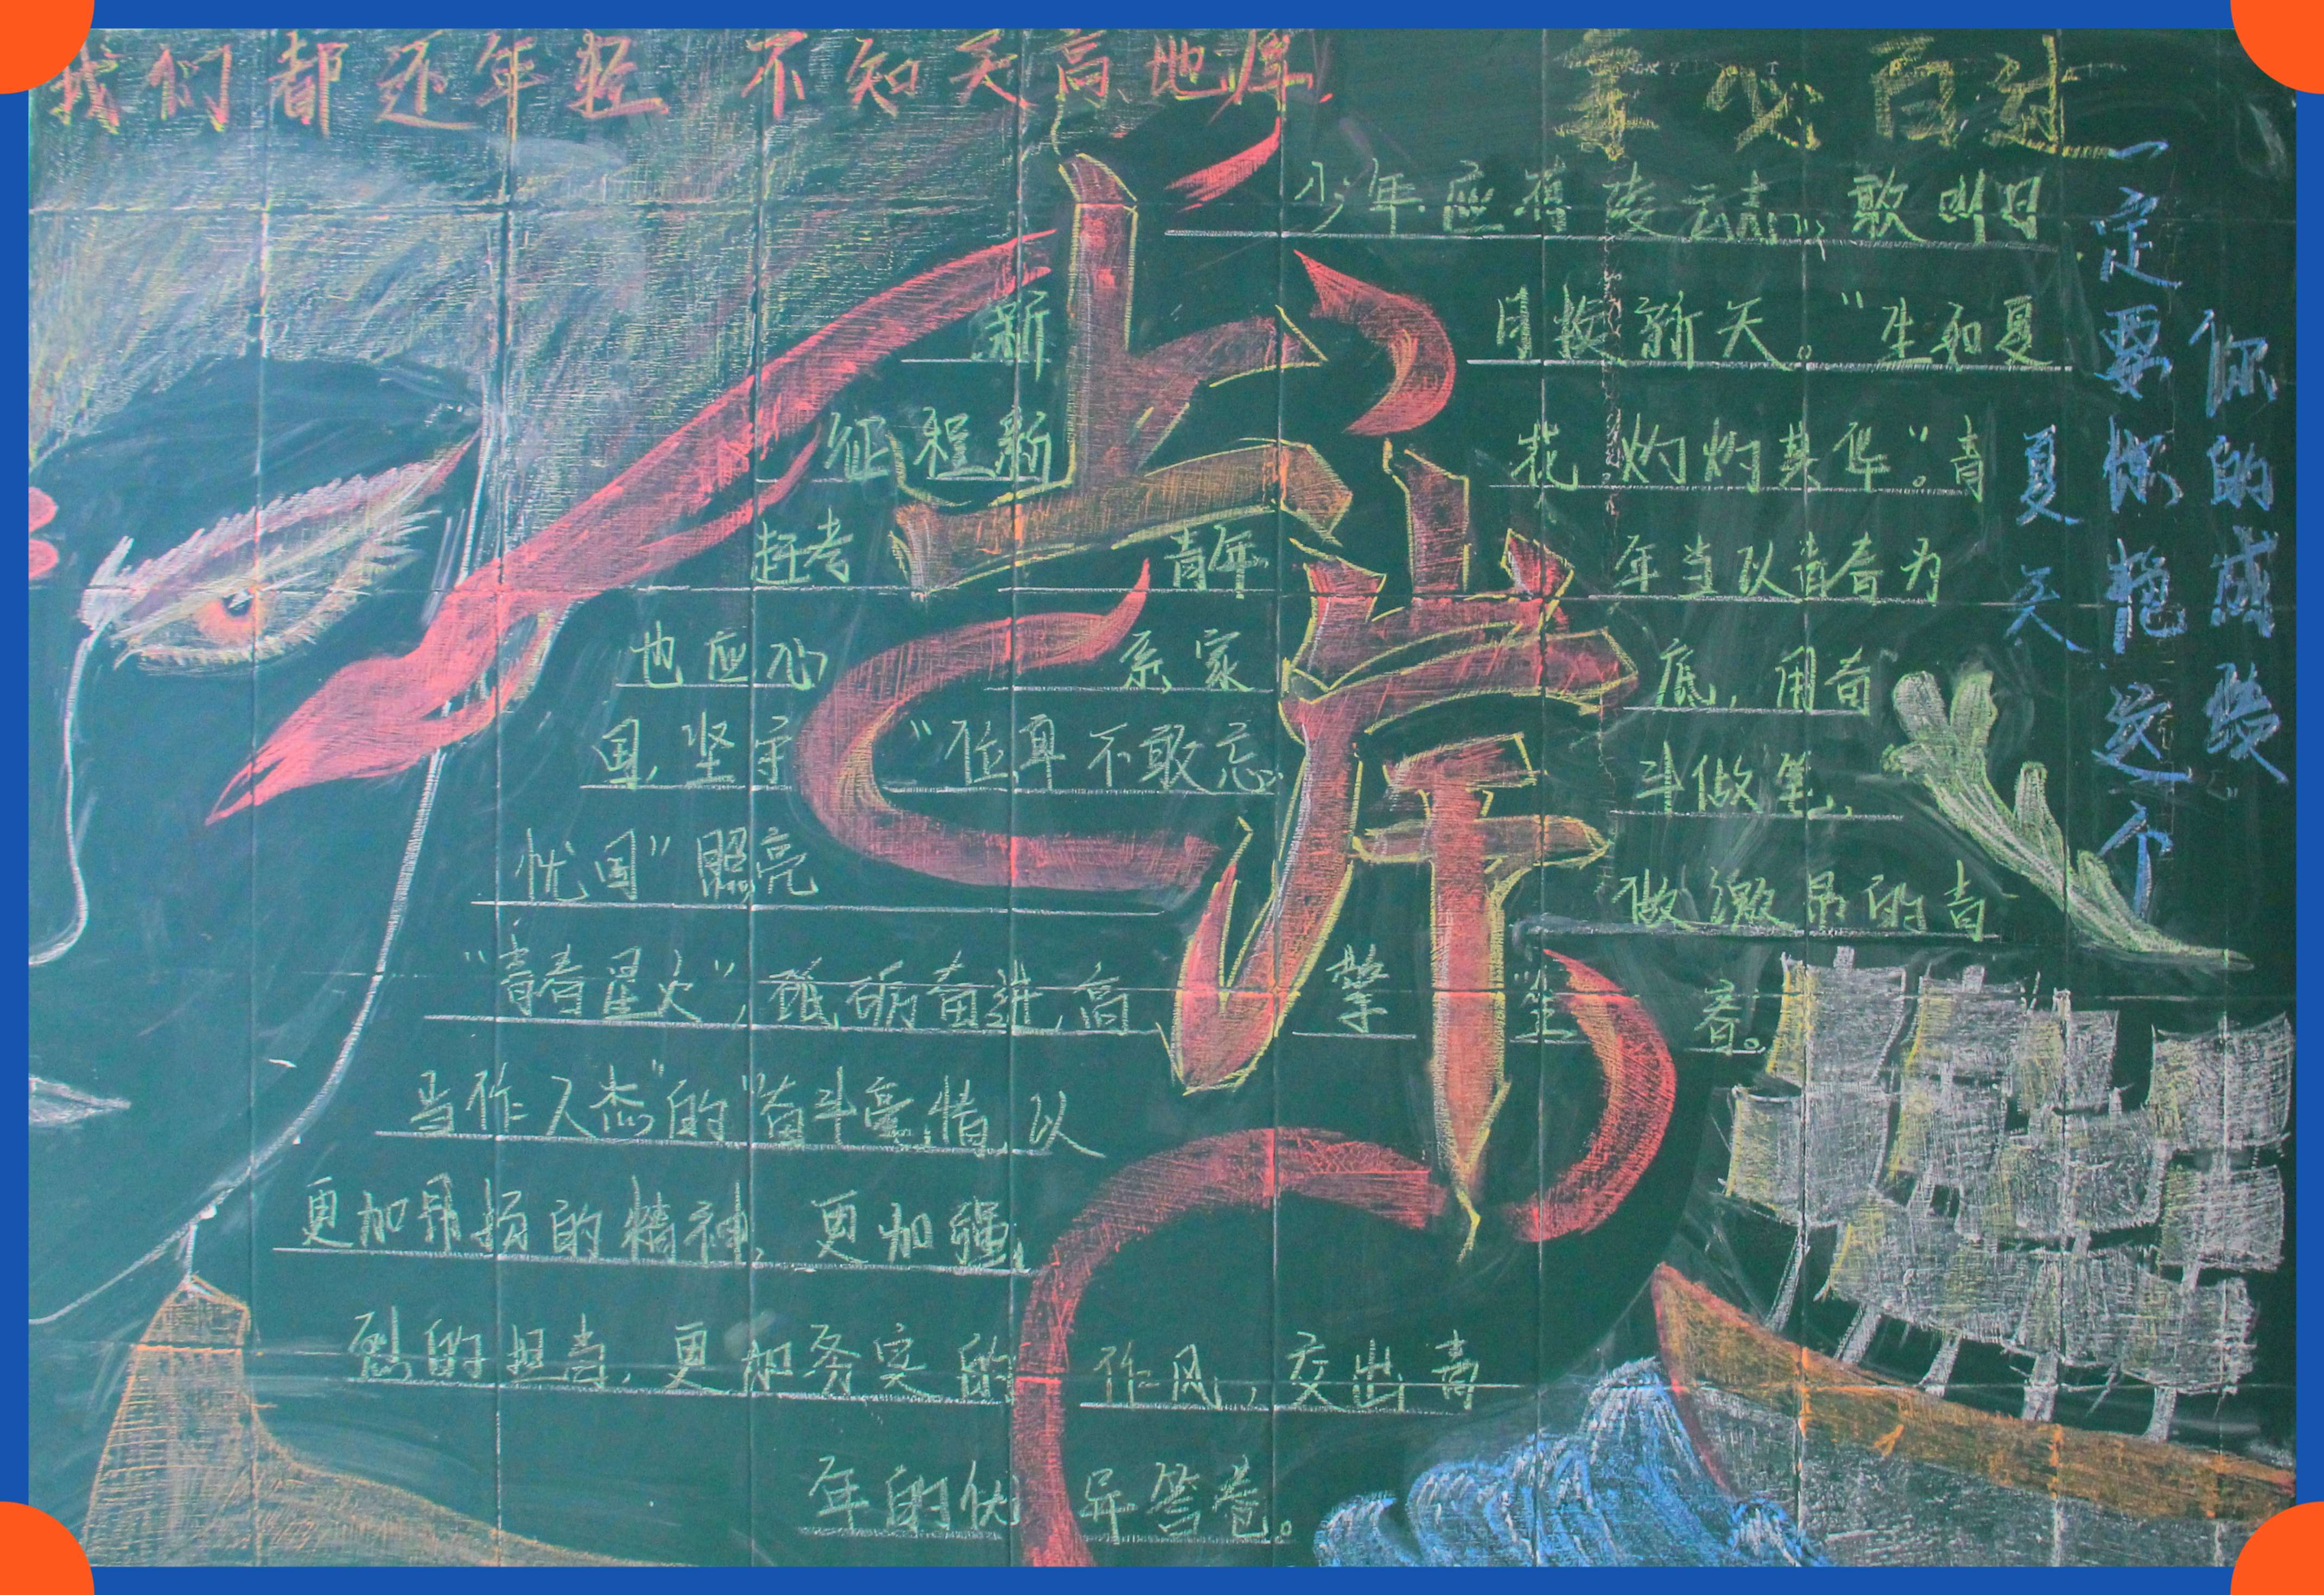 我们都还年轻 不知天高地厚
拿必自过
上岸
少年应有凌云志，歌叫日
月换新天。“生和夏
花 灼灼其华”。青
年当以青春为
底，用奋
斗做笔，
做激昂的青
春。
新
征程新
赶考 青年
也应心 系家
国，坚守 “位卑不敢忘
忧国”照亮
“青春星火”，砥砺奋进，高 擎 “生
当作人杰”的“奋斗豪情，以
更加昂扬的精神，更加强
烈的担当，更加务实的 作风，交出青
年的优 异答卷。
你的成绩
一定要惊艳这个
夏天